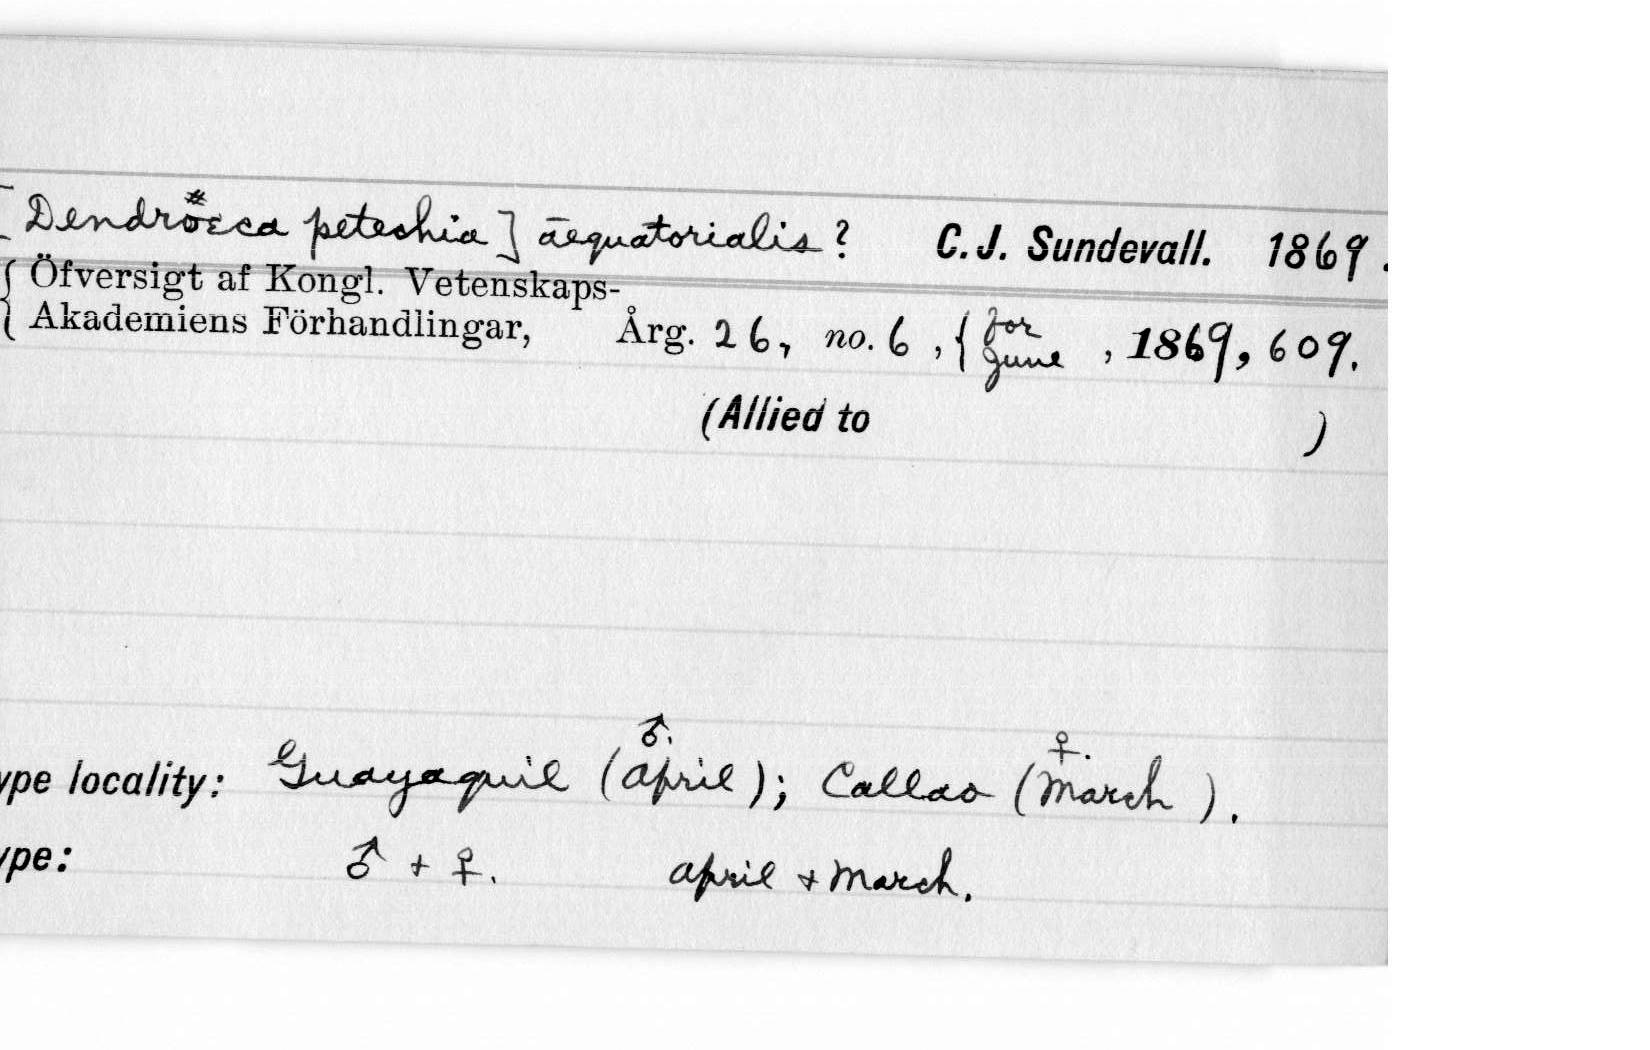 [Dendrœca petechia] æquatorialis? C.J. Sundevall. 1869.
{ Öfversigt af Kongl. Vetenskaps-
Akademiens Förhandlingar, Årg. 26, no. 6, { for June, 1869, 609.
(Allied to )
♂. ♀.
ype locality: Guayaquil (April); Callao (March).
ype: ♂ + ♀. April + March.